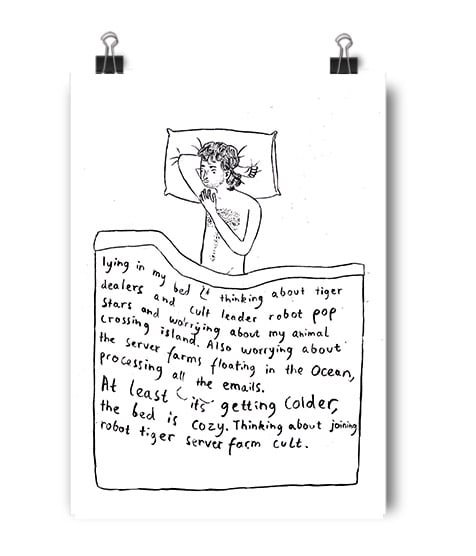 lying in my bed thinking about tiger
dealers and cult leader robot pop
stars and worrying about my animal
crossing island. Also worrying about
the server farms floating in the Ocean,
processing all the emails.
At least it's getting colder,
the bed is cozy. Thinking about joining
robot tiger server farm cult.